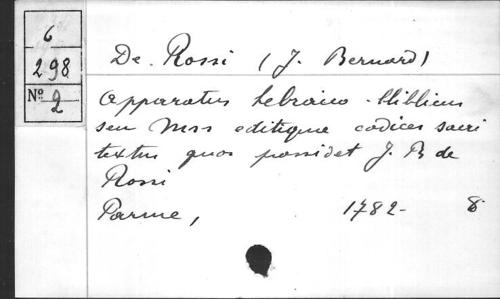 6
298
Nº 2
De Rossi (J. Bernard)
Apparatus hebraico-biblicus
seu Mss editique codices sacri
textus quos possidet J. B de
Rossi
Parme, 1782- 8